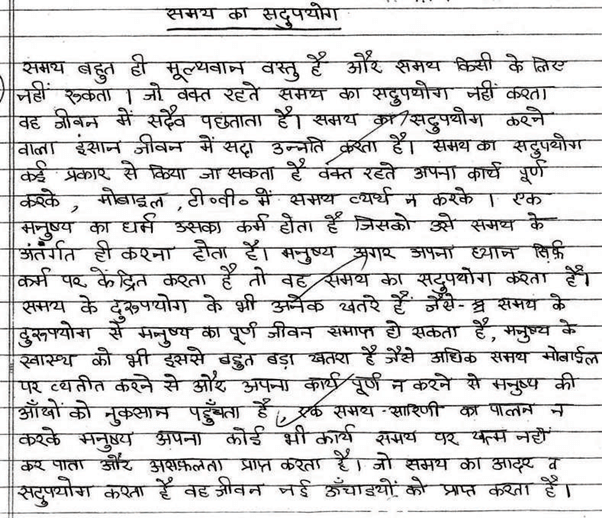 समय का सदुपयोग
समय बहुत ही मूल्यवान वस्तु है और समय किसी के लिए
नहीं रुकता । जो वक्त रहते समय का सदुपयोग नहीं करता
वह जीवन में सदैव पछताता है। समय का सदुपयोग करने
वाला इंसान जीवन में सदा उन्नति करता है। समय का सदुपयोग
कई प्रकार से किया जा सकता है वक्त रहते अपना कार्य पूर्ण
करके , मोबाइल , टी०वी० में समय व्यर्थ न करके । एक
मनुष्य का धर्म उसका कर्म होता है जिसको उसे समय के
अंतर्गत ही करना होता है। मनुष्य अगर अपना ध्यान सिर्फ़
कर्म पर केंद्रित करता है तो वह समय का सदुपयोग करता है।
समय के दुरुपयोग के भी अनेक खतरे हैं जैसे- समय के
दुरुपयोग से मनुष्य का पूर्ण जीवन समाप्त हो सकता है , मनुष्य के
स्वास्थ को भी इससे बहुत बड़ा खतरा है जैसे अधिक समय मोबाईल
पर व्यतीत करने से और अपना कार्य पूर्ण न करने से मनुष्य की
आँखों को नुकसान पहुँचता है , एक समय-सारिणी का पालन न
करके मनुष्य अपना कोई भी कार्य समय पर खत्म नहीं
कर पाता और अशफलता प्राप्त करता है। जो समय का आदर व
सदुपयोग करता है वह जीवन नई ऊँचाइयों को प्राप्त करता है।